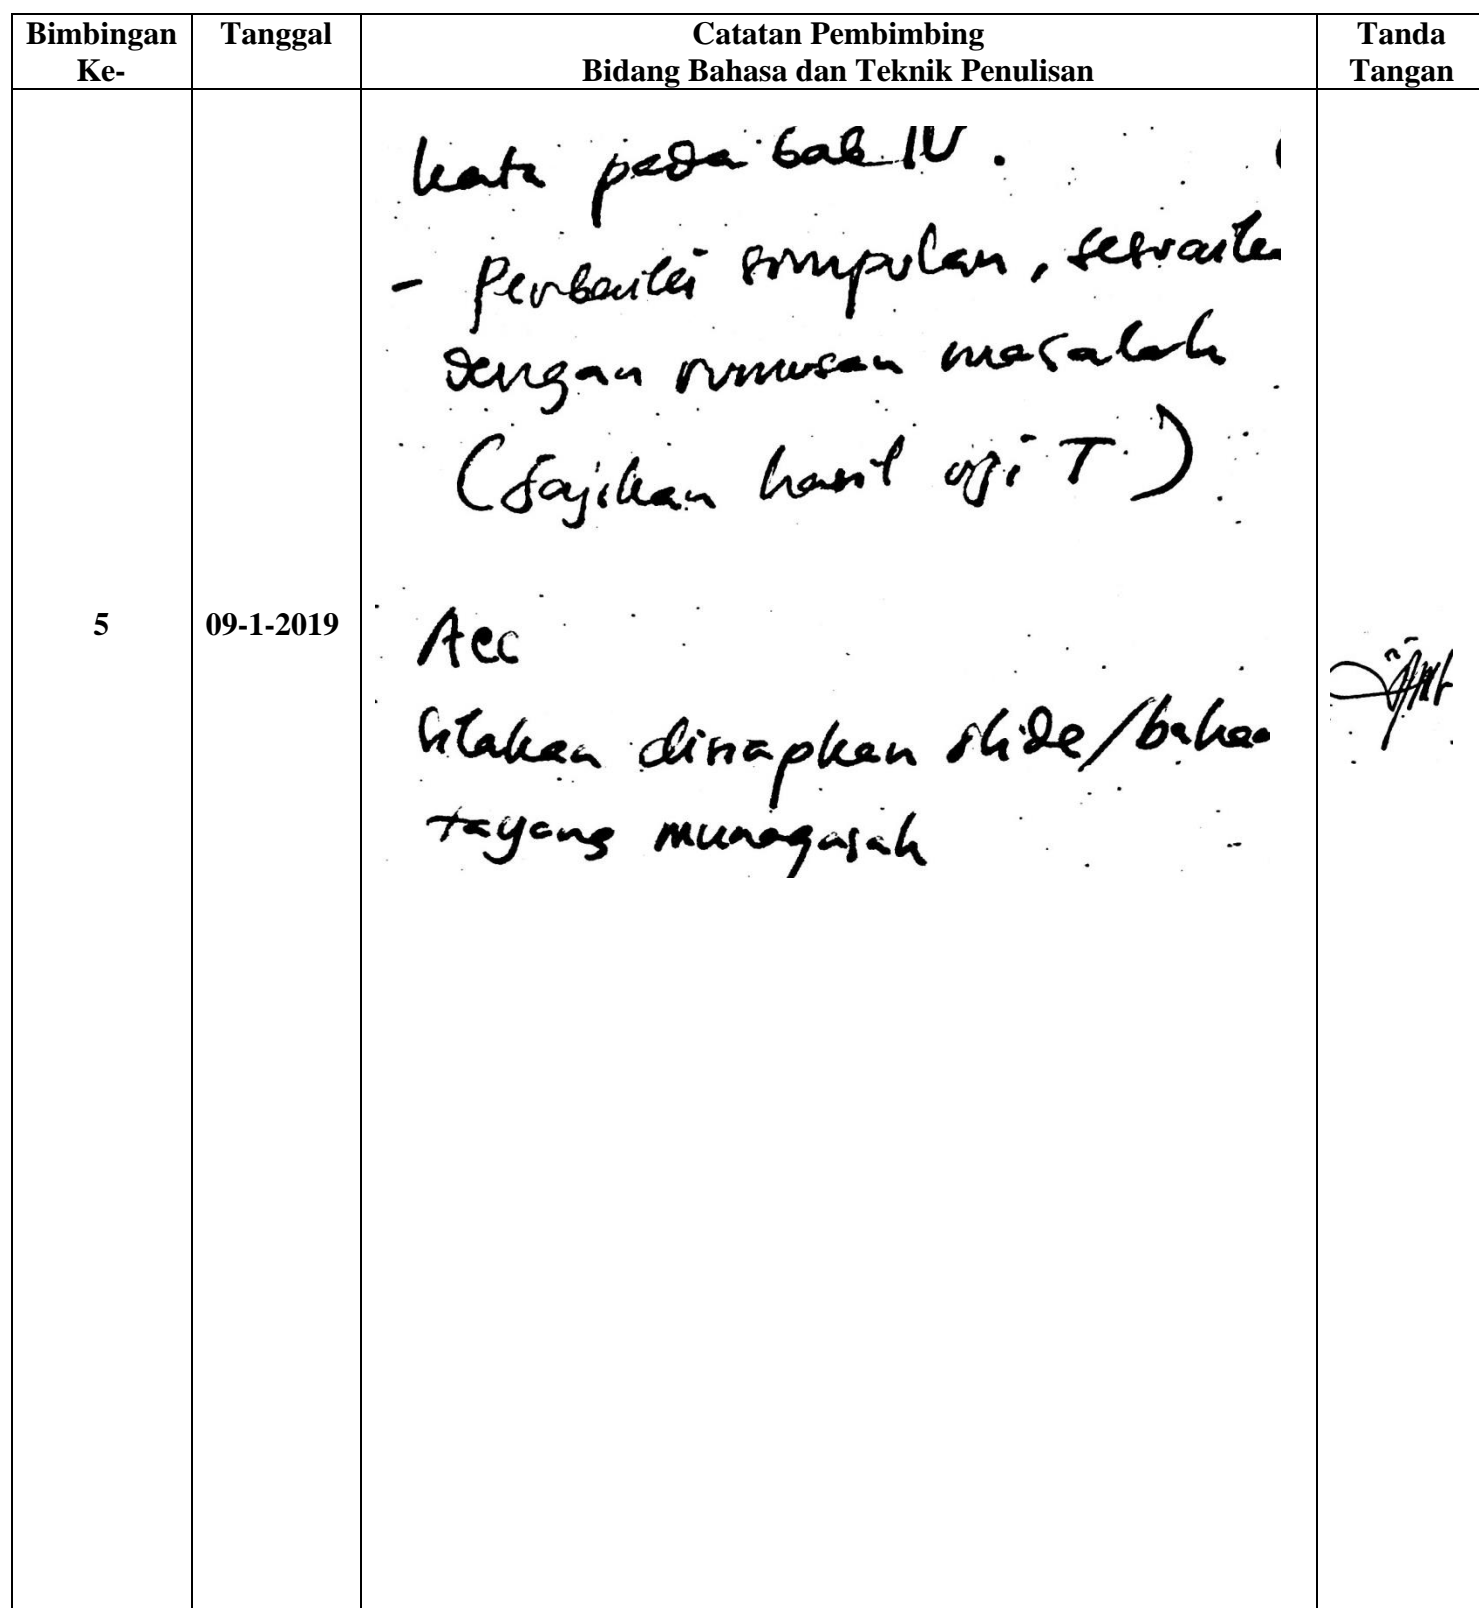 Bimbingan Ke-
Tanggal
Catatan Pembimbing
Bidang Bahasa dan Teknik Penulisan
Tanda Tangan
kata pada bab IV.
- Perbaiki simpulan, sesuaika
dengan rumusan masalah
(Sajikan hasil uji T)
5
09-1-2019
Acc
silakan disiapkan slide/bahan
tayang munaqasah